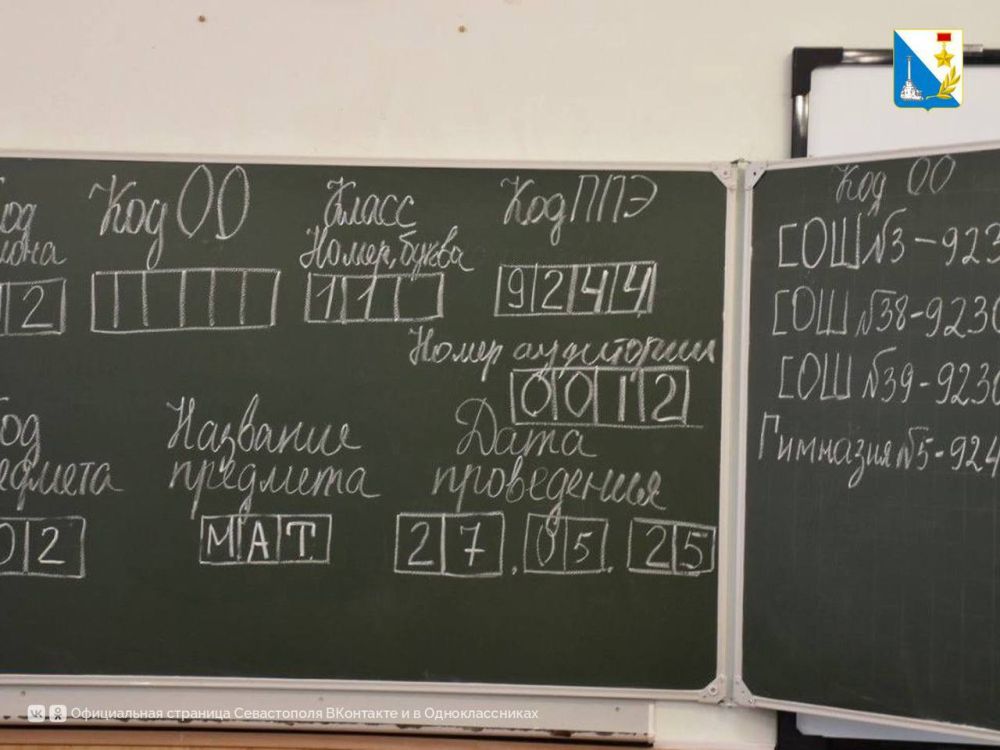 Код ОО
Класс
Номер, буква
Код ППЭ
2
11
9244
Номер аудитории
0012
Название
предмета
Дата
проведения
02
МАТ
27.05.25
Код ОО
СОШ №3-923
СОШ №38-9230
СОШ №39-9230
Гимназия №5-924
Официальная страница Севастополя ВКонтакте и в Одноклассниках